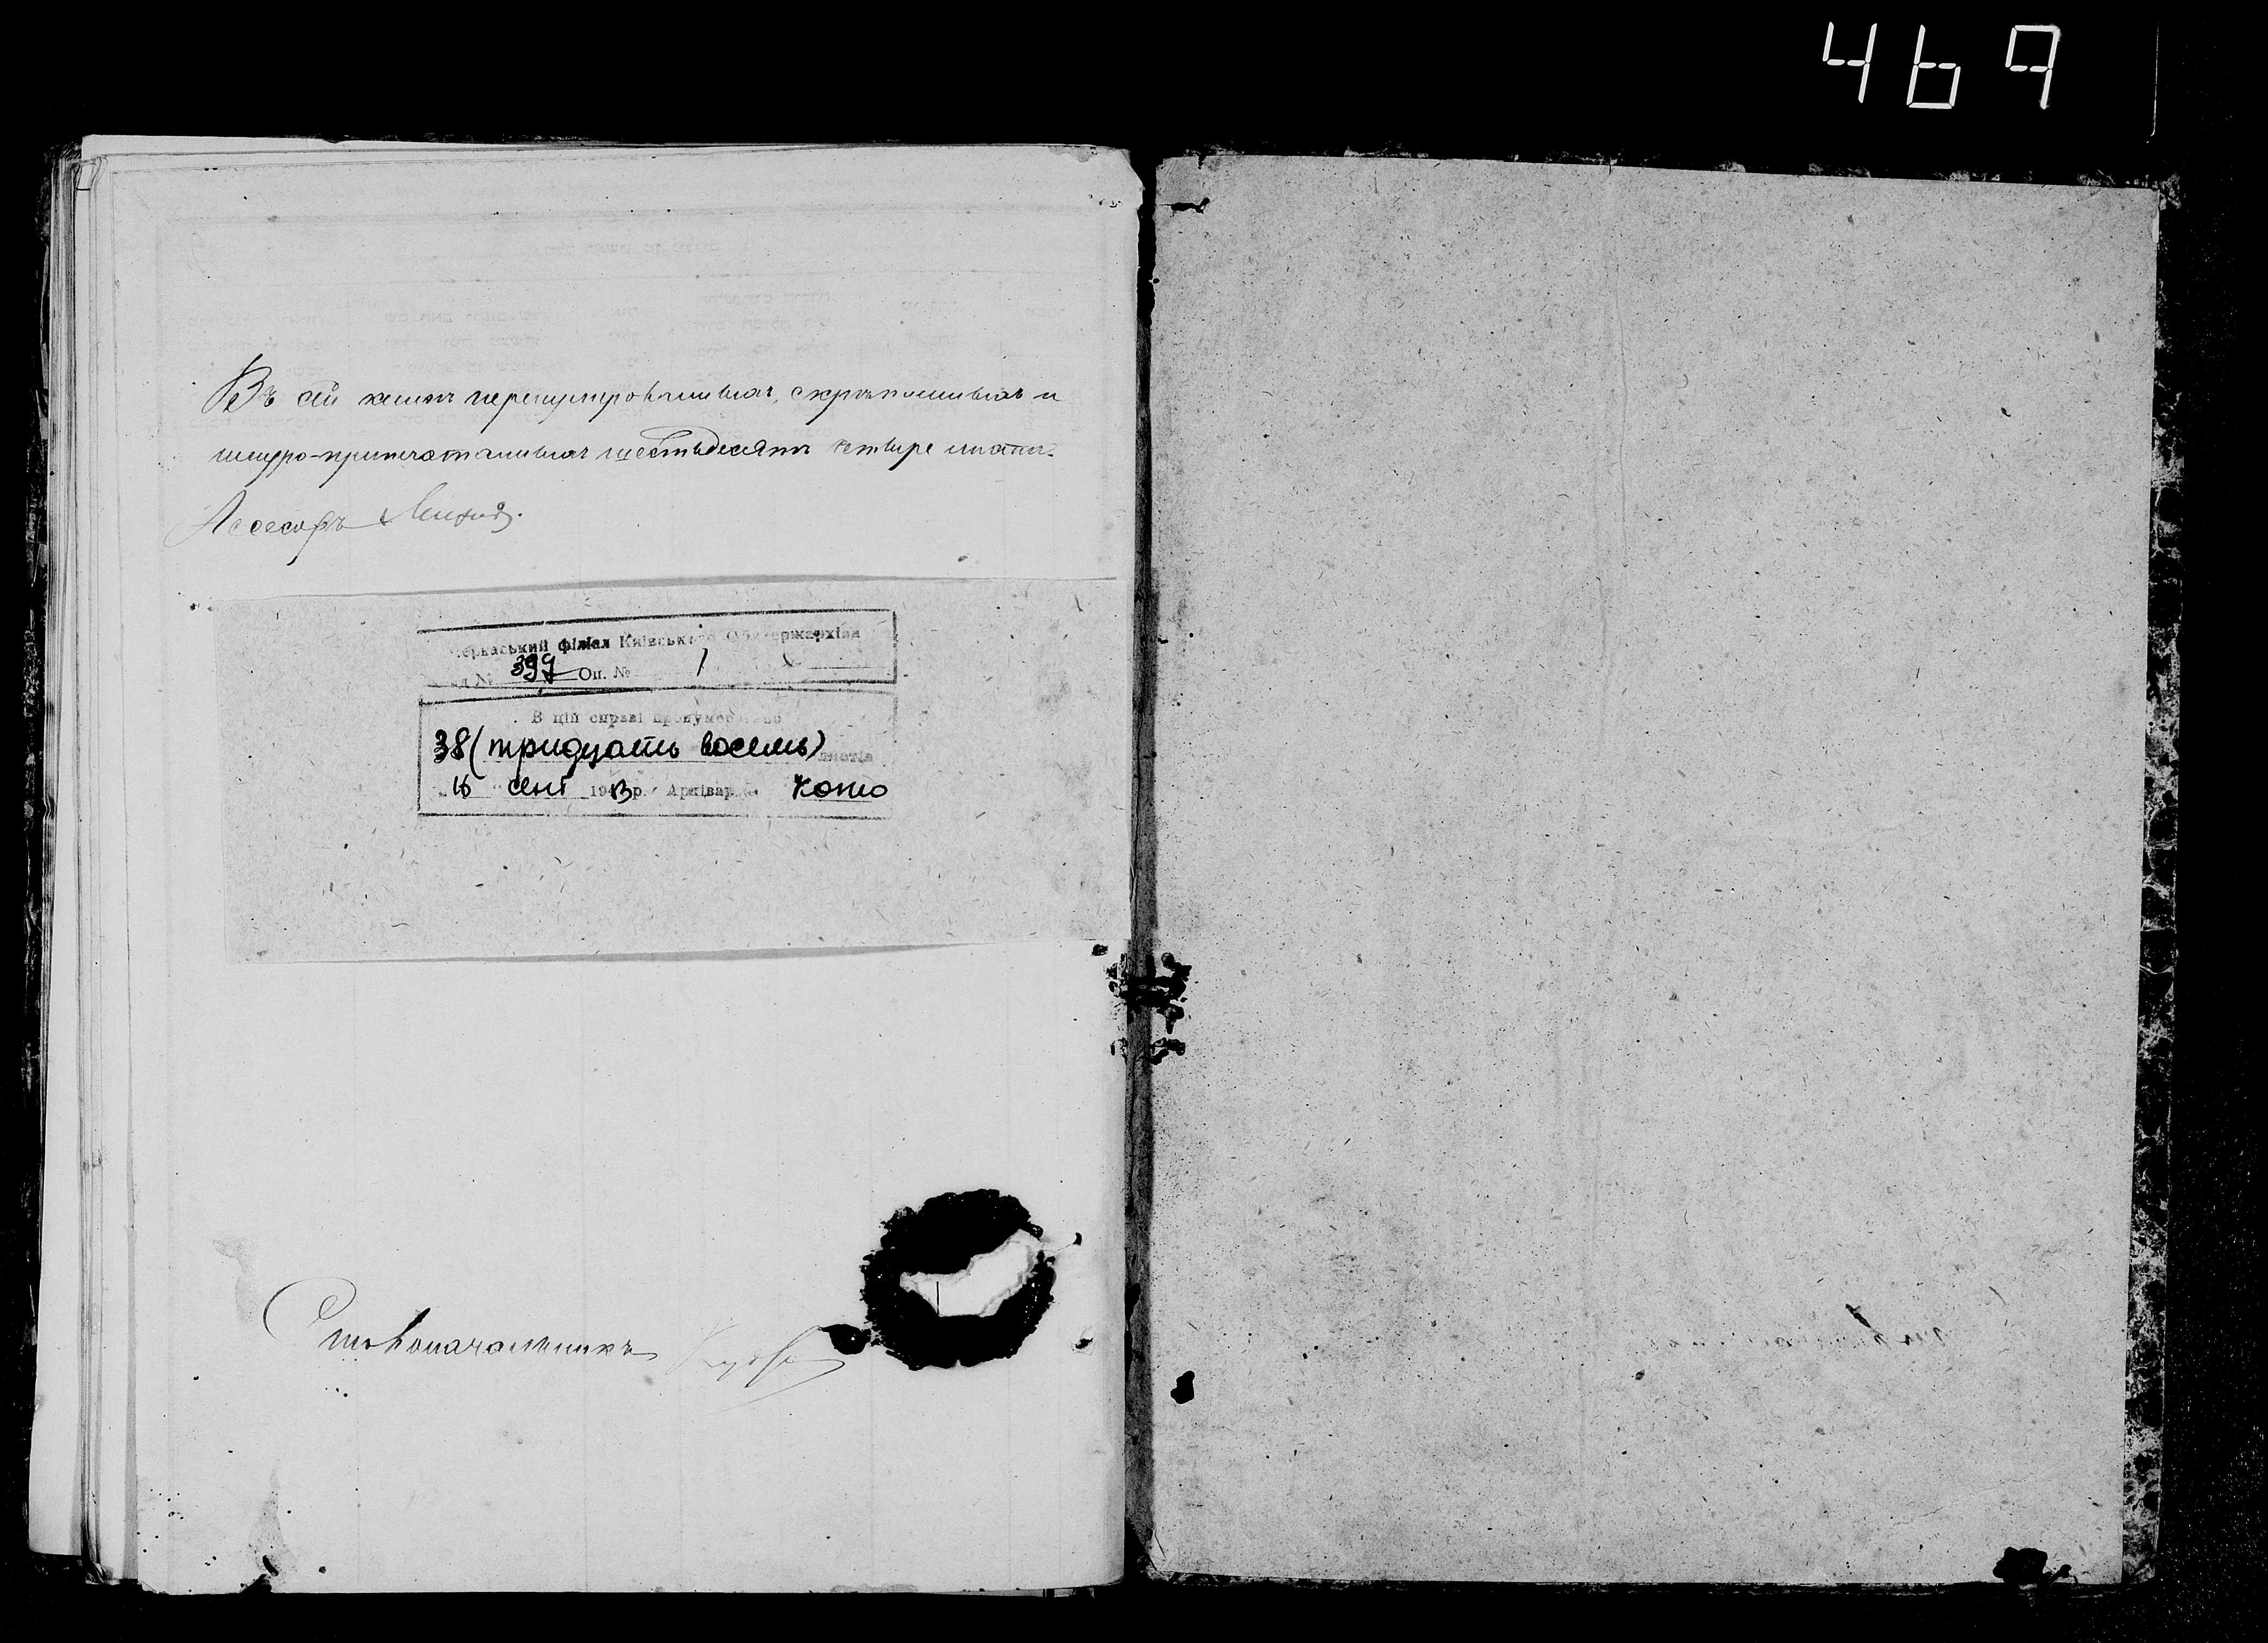 469
Въ сей книгѣ перенумерованныхъ, скрѣпленныхъ и
шнуро-припечатанныхъ шестьдесятъ четыре листа.
Асесоръ
Черкаський філіал Київського Облдержархіва
397 Оп. № 1
В цій справі пронумеровано
38 (тридцать восемь) листів
16 сент 19 р. Архівар
Столоначальникъ